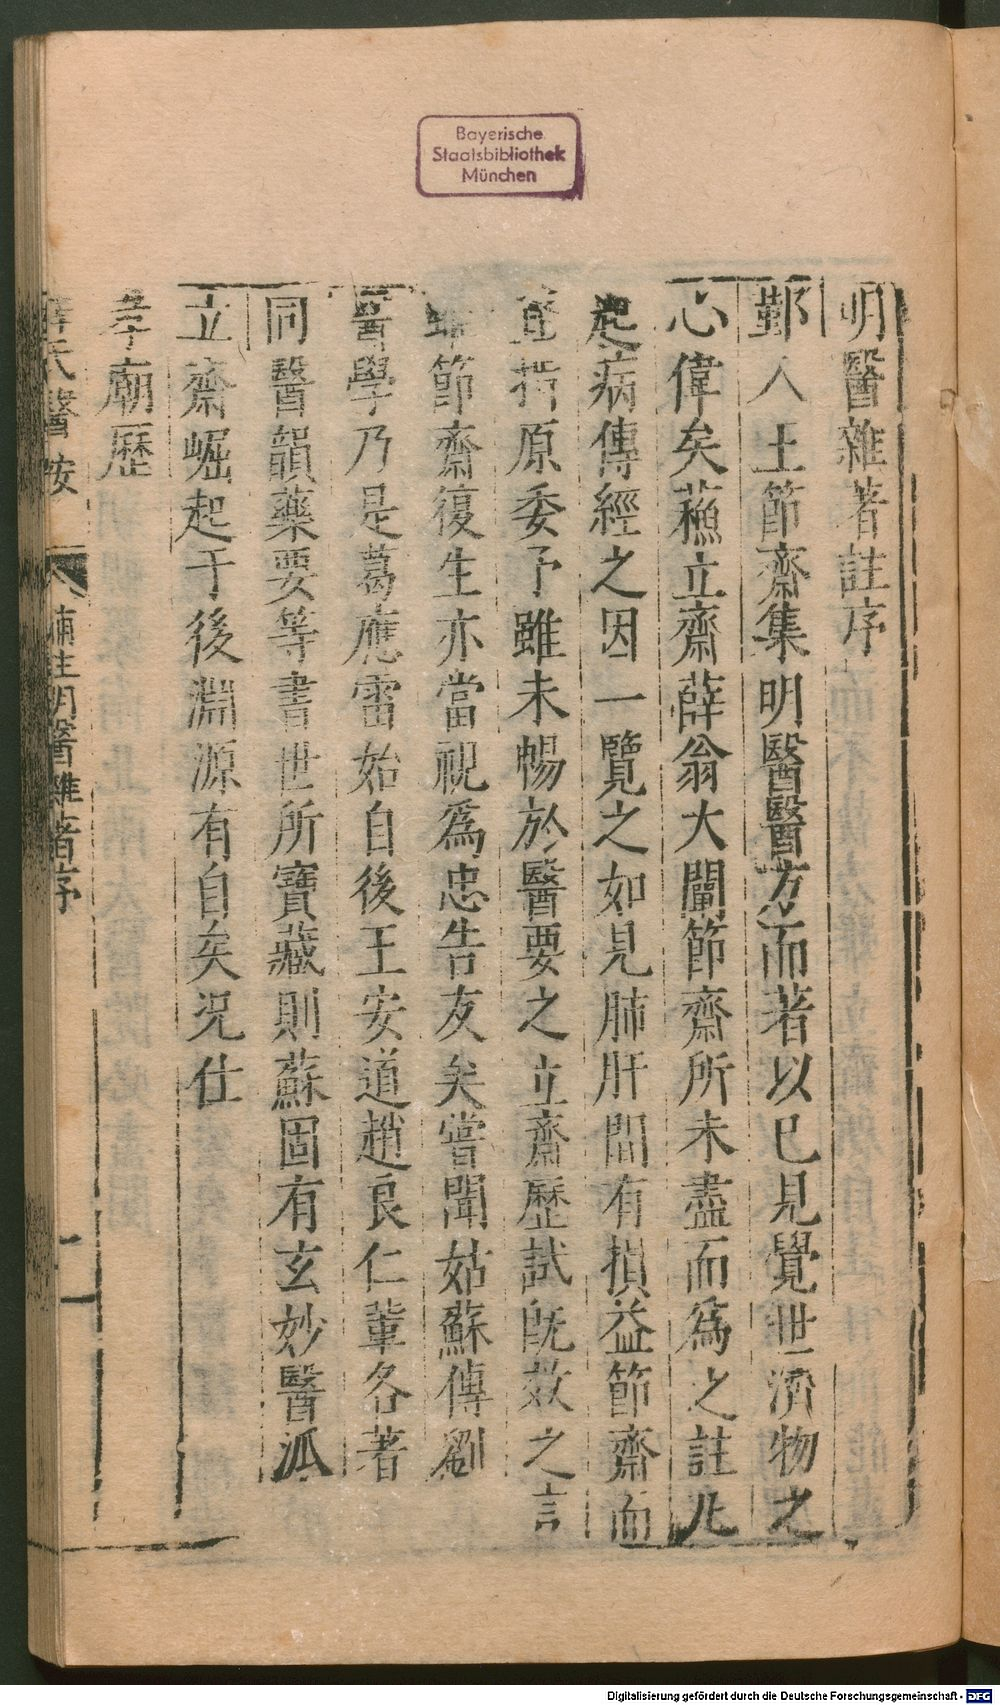 Bayerische
Staatsbibliothek
München
明醫雜著註序
鄞人土節齋集明醫醫方而著以已見覺世濟物之
心偉矣蘓立齋薛翁大闡節齋所未盡而爲之註凡
起病傳經之因一覽之如見肺肝間有損益節齋而
直指原委予雖未暢於醫要之立齋歷試旣效之言
節齋復生亦當視爲忠告友矣嘗聞姑蘇傳劉
醫學乃是葛應雷始自後王安道趙良仁輩各著
同醫韻藥要等書世所寶藏則蘇固有玄妙醫派
立齋崛起于後淵源有自矣况仕
孝廟歷
薛氏醫按 補註明醫雜著序 一
Digitalisierung gefördert durch die Deutsche Forschungsgemeinschaft - DFG